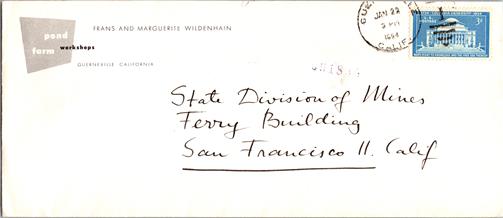 FRANS AND MARGUERITE WILDENHAIN
pond
farm workshops
GUERNEVILLE CALIFORNIA
JAN 22
PM
1954
CALIF.
3¢
State Division of Mines
Ferry Building
San Francisco 11. Calif